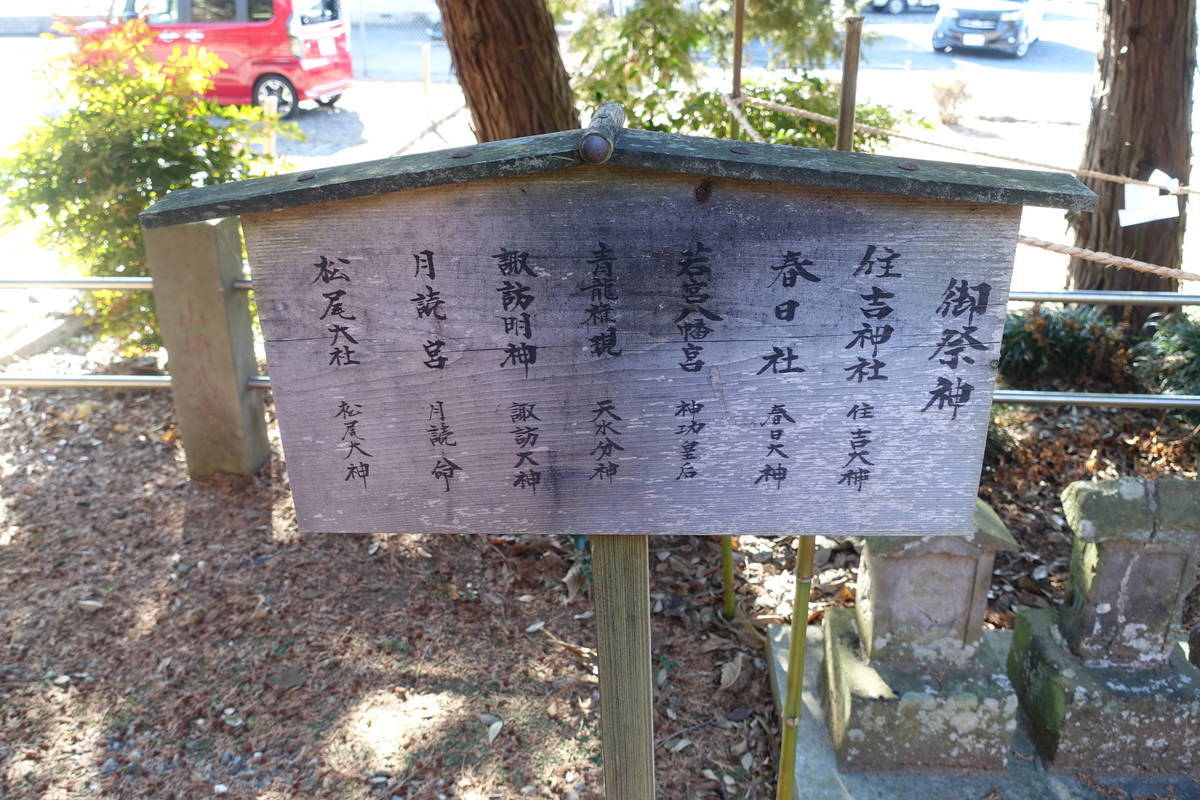 御祭神
住吉神社 住吉大神
春日社 春日大神
若宮八幡宮 神功皇后
青龍権現 天水分神
諏訪明神 諏訪大神
月読宮 月読命
松尾大社 松尾大神